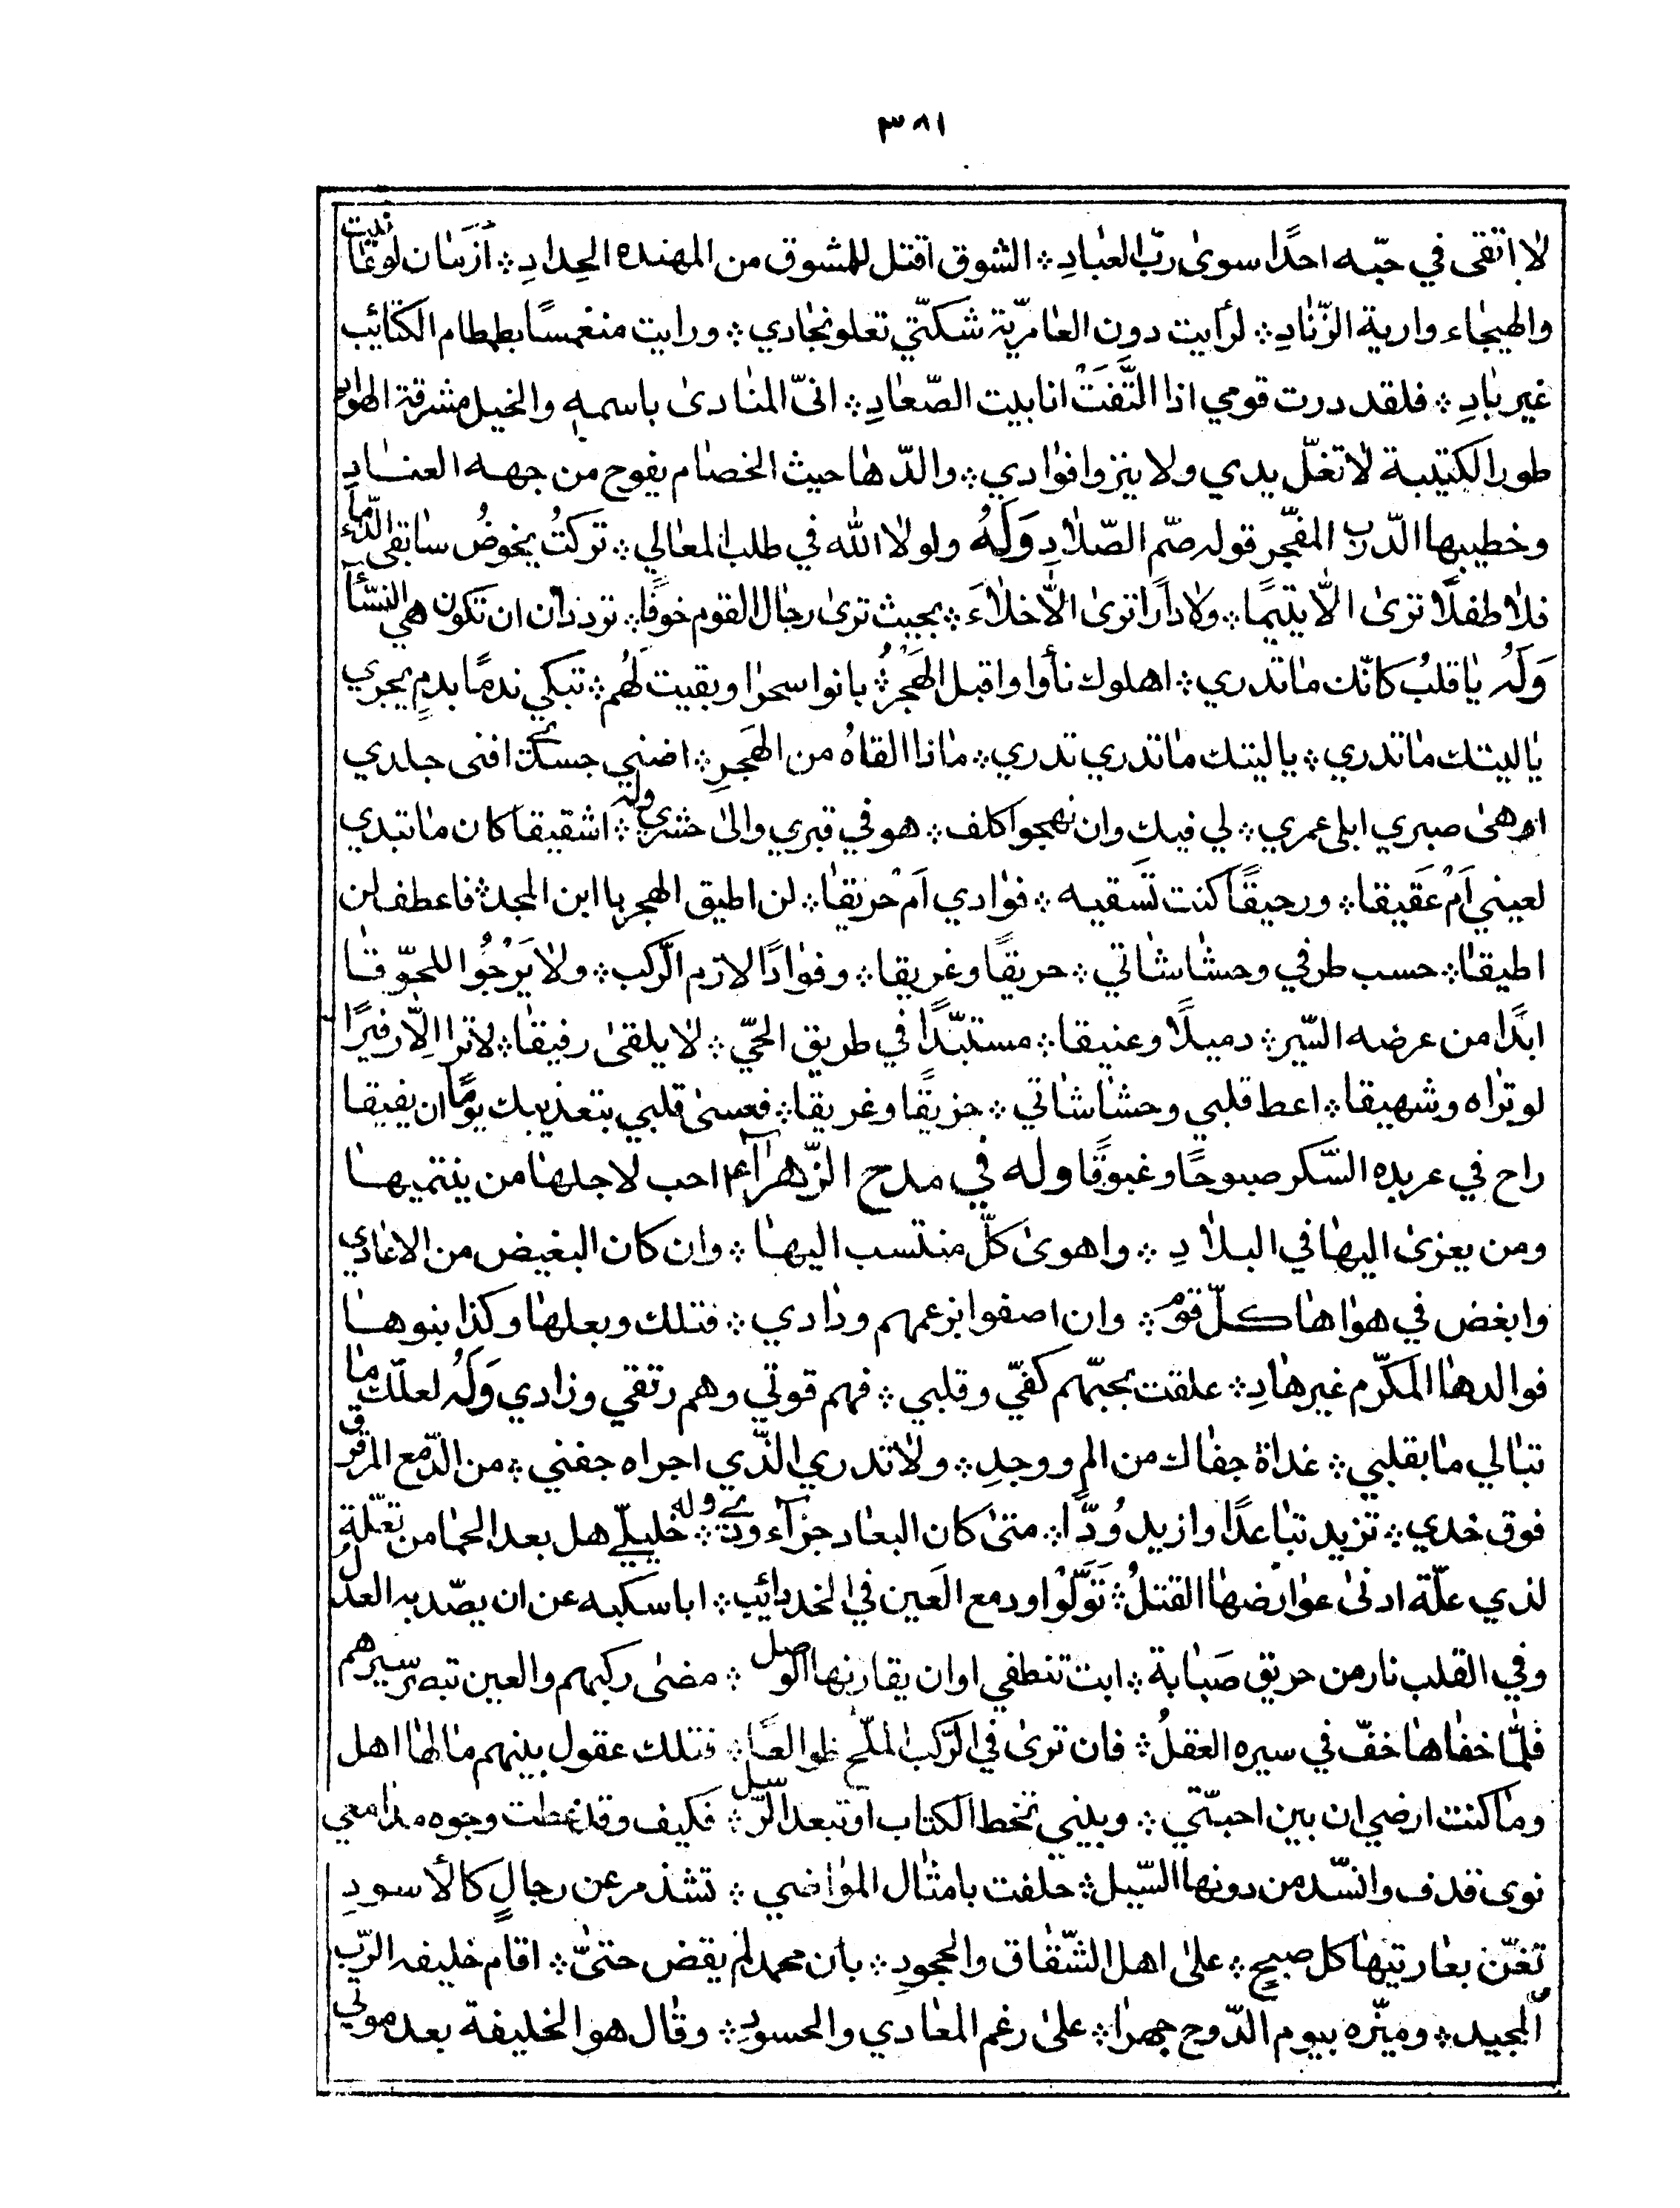 ٣٨١
لا اتقى في حبّه احدًا سوى ربّ العبادِ ؞ الشوق اقتل للمشوق من المهنده الحدادِ ؞
والهيجاء وارية الزّنادِ ؞ لرأيت دون العامريّة شكّتي تعلو نجادي ؞ ورايت منغمسًا بطمطام الكتائب
غير بادِ ؞ فلقد درت قومي اذا التّفت انابيت الصّعادِ ؞ انىّ المنادى باسمه والخيل مشرقة الهواد
طور الكتيبة لا تغلّ يدي ولا ينزوا فؤادي ؞ والدّها حيث الخصام يفوح من جهه العنادِ
وخطيبها الدّرب المفجّر قوله صمّ الصّلادِ وَلَهُ ولولا الله في طلب المعالي ؞ تركتُ يخوضُ سابقى الدّماء
فلا طفلًا ترى الّا يتيمًا ؞ ولا دارًا ترى الّا خلاءَ ؞ بحيث ترى رجال القوم خوفًا ؞ تردّدان ان تكون هي النسّاء
وَلَهُ ياقلبُ كانّك ما تدري ؞ اهلوك نأوا واقبل الهَجْرُ ؞ بانوا سحرا وبقيت لهُم ؞ تبكي ندمًا بدمٍ يجري
ياليتك ما تدري ؞ ياليتك ما تدري تدري ؞ ماذا القاهُ من الهَجرِ ؞ اضني جسدي افنى جلدي
اوهى صبري ابلى عمري ؞ لي فيك وان نهجوا كلف ؞ هو في قبري والى حشري وله ؞ اشقيقا كان ما تبدي
لعيني اَمْ عَقيقا ؞ ورحيقًا كنت تَسقيه ؞ فؤادي اَمْ حريقا ؞ لن اطيق الهجر يا ابن المجد ؞ فاعطف لن
اطيقا ؞ حسب طرفي وحشاشاتي ؞ حريقًا وغريقا ؞ وفؤادًا لازم الرّكب ؞ ولا يَرْجُوا اللحوقا
ابدًا من عرضه السّير ؞ دميلًا وعنيقا ؞ مستبّدًا في طريق الحيّ ؞ لا يلقى رفيقا ؞ لا ترا الّا زفيرًا
لو تراه وشهيقا ؞ اعط قلبي وحشاشاتي ؞ حريقًا وغريقا ؞ فعسى قلبي بتعذيبك يومًا ان يفيقا
راح في عربده السّكر صبوحًا وغبوقًا وله في مدح الزّهرآء ع احب لاجلها من ينتميها
ومن يعزى اليها في البلادِ ؞ واهوى كلّ منتسب اليها ؞ وان كان البغيض من الاعادي
وابغض في هواها كلّ قومٍ ؞ وان اصفوا بزعمهم ودادي ؞ فتلك وبعلها وكذا بنوها
فوالدها المكرّم غير هادِ ؞ علقت بحبّهم كفيّ وقلبي ؞ فهم قوتي وهم رتقي وزادي وَلَهُ لعلّك ما
تبالي ما بقلبي ؞ غداة جفاك من المٍ ووجدِ ؞ ولا تدري الذّي اجراه جفني ؞ من الدّمع المرقرق
فوق خدي ؞ تزيد تباعدًا وازيد وُدًّا ؞ متى كان البعاد جزآء ودّي ؞ وله خليليّ هل بعد الحما من تعلّةٍ
لذي علّة ادنى عوارضها القتلُ ؞ تَوَلَّوْا ودمع العين في الخد دائب ؞ ابا سكبه عن ان يصّد به العدلُ
وفي القلب نار من حريق صَبابة ؞ ابت تنطفي او ان يقارنها الوصل ؞ مضى ركبهم والعين تبصر سيرهم
فلمّا خفاها خفّ في سيره العقلُ ؞ فان ترى في الرّكب الملحّ ؞ فتلك عقول بينهم ما لها اهل
وما كنت ارضي ان بين احبّتي ؞ وبيني تخط الكتاب او تبعد الرّسل ؞ فكيف وقد غطت وجوه مذامعي
نوى قذف وانسّد من دونها السّبل ؞ حلفت بامثال المواضي ؞ تشذمر عن رجالٍ كالأسودِ
تغنّ بعاريتها كل صبحٍ ؞ على اهل الشّقاق والجحودِ ؞ بان محمد لم يقض حتىّ ؞ اقام خليفه الرّب
المجيد ؞ وميّزه بيوم الدّوح جهرا ؞ على رغم المعادي والحسودِ ؞ وقال هو الخليفة بعد موتي